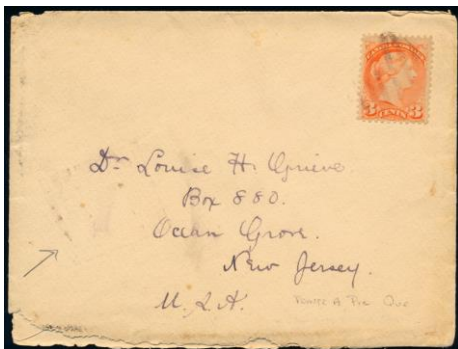 3 CENTS 3
Dr Louise H. Grieve.
Box 880.
Ocean Grove.
New Jersey.
U.S.A.